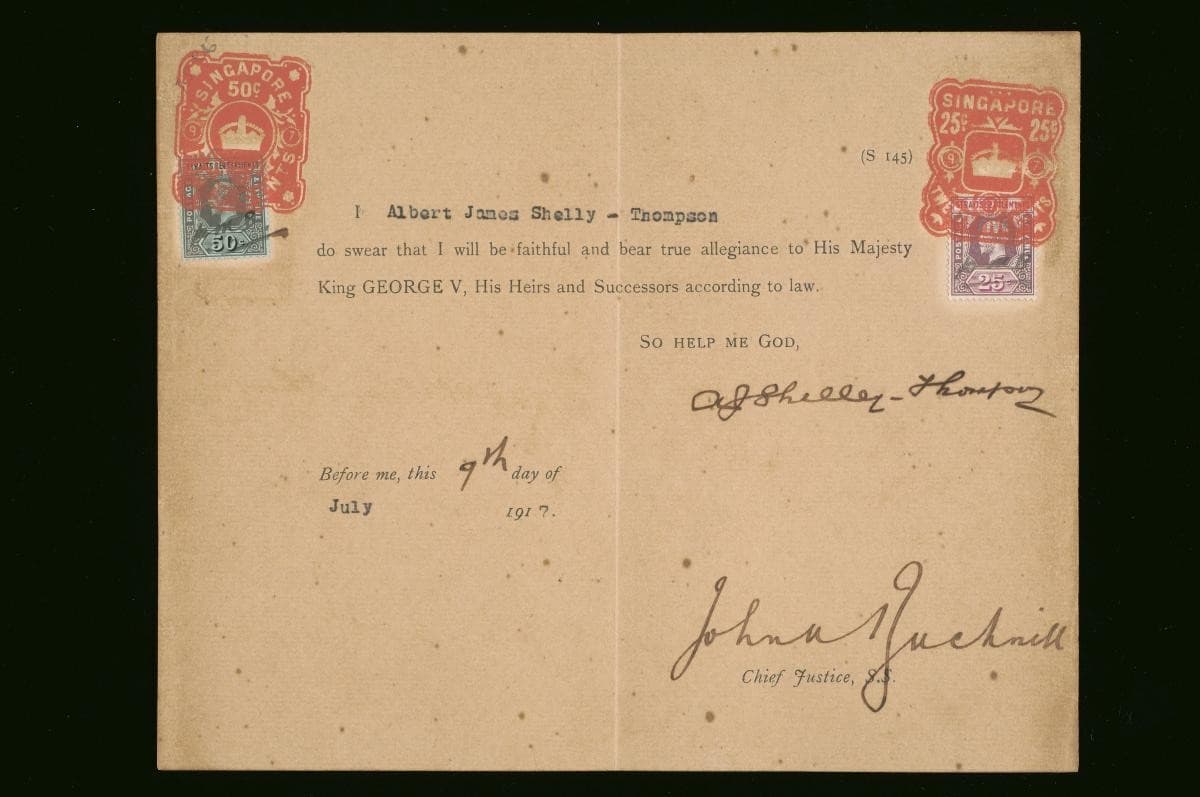 SINGAPORE
50c
9 7
NTS
50c
SINGAPORE
25c 25c
9 7
25c
(S 145)
I Albert James Shelly - Thompson
do swear that I will be faithful and bear true allegiance to His Majesty
King GEORGE V, His Heirs and Successors according to law.
SO HELP ME GOD,
AJ Shelley-Thompson
Before me, this 9th day of
July 1917.
John A Bucknill
Chief Justice, S.S.